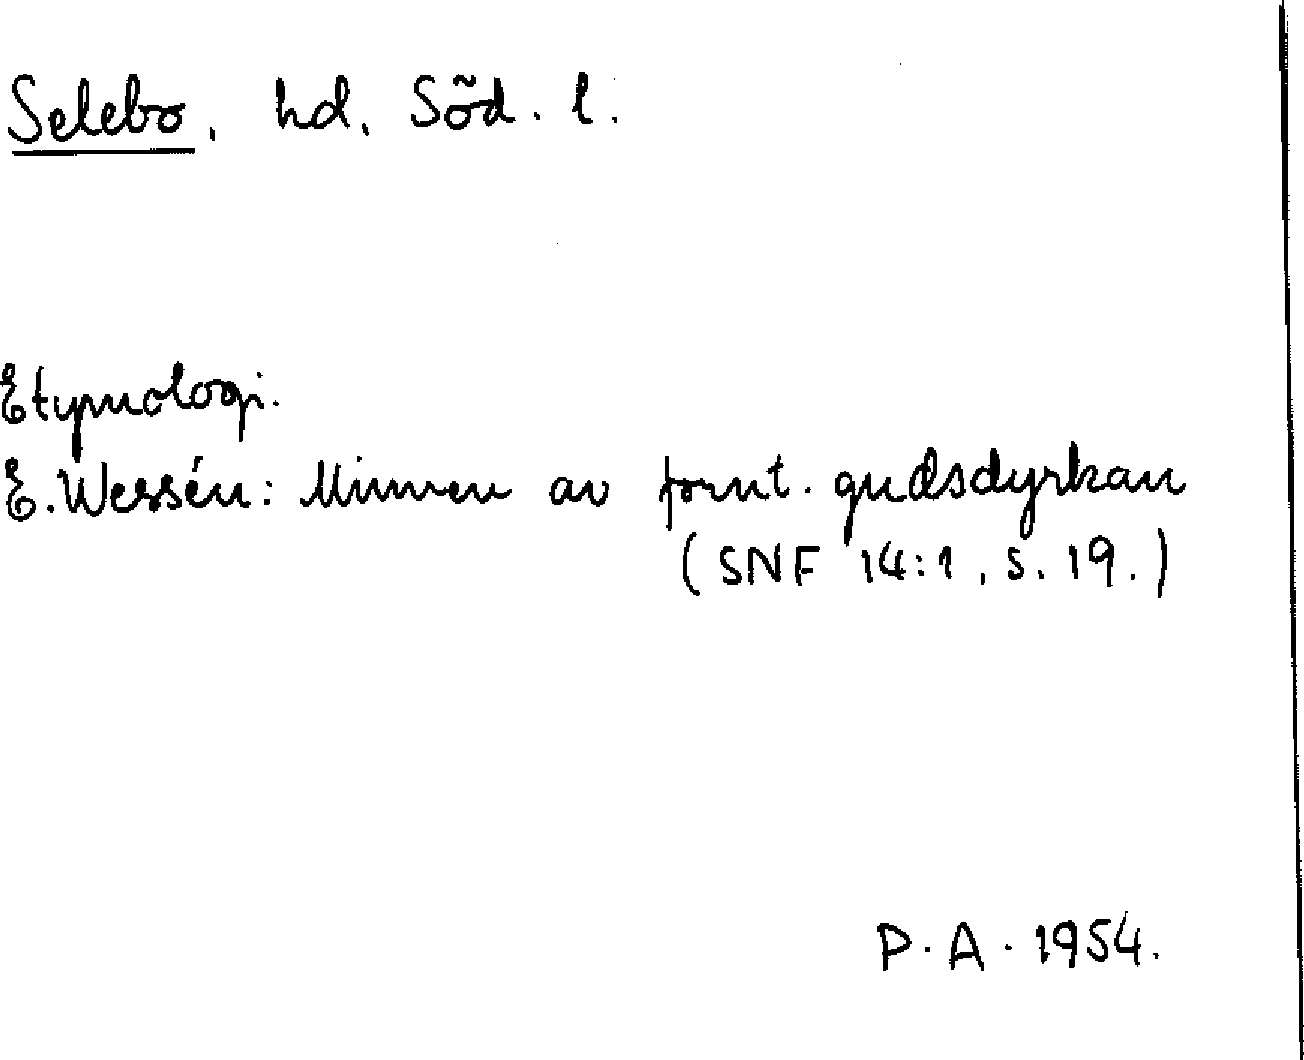 Selebo, hd. Söd. l.
Etymologi.
E. Wessén: Minnen av fornt. gudsdyrkan
(SNF 14:1, s. 19.)
P. A. 1954.